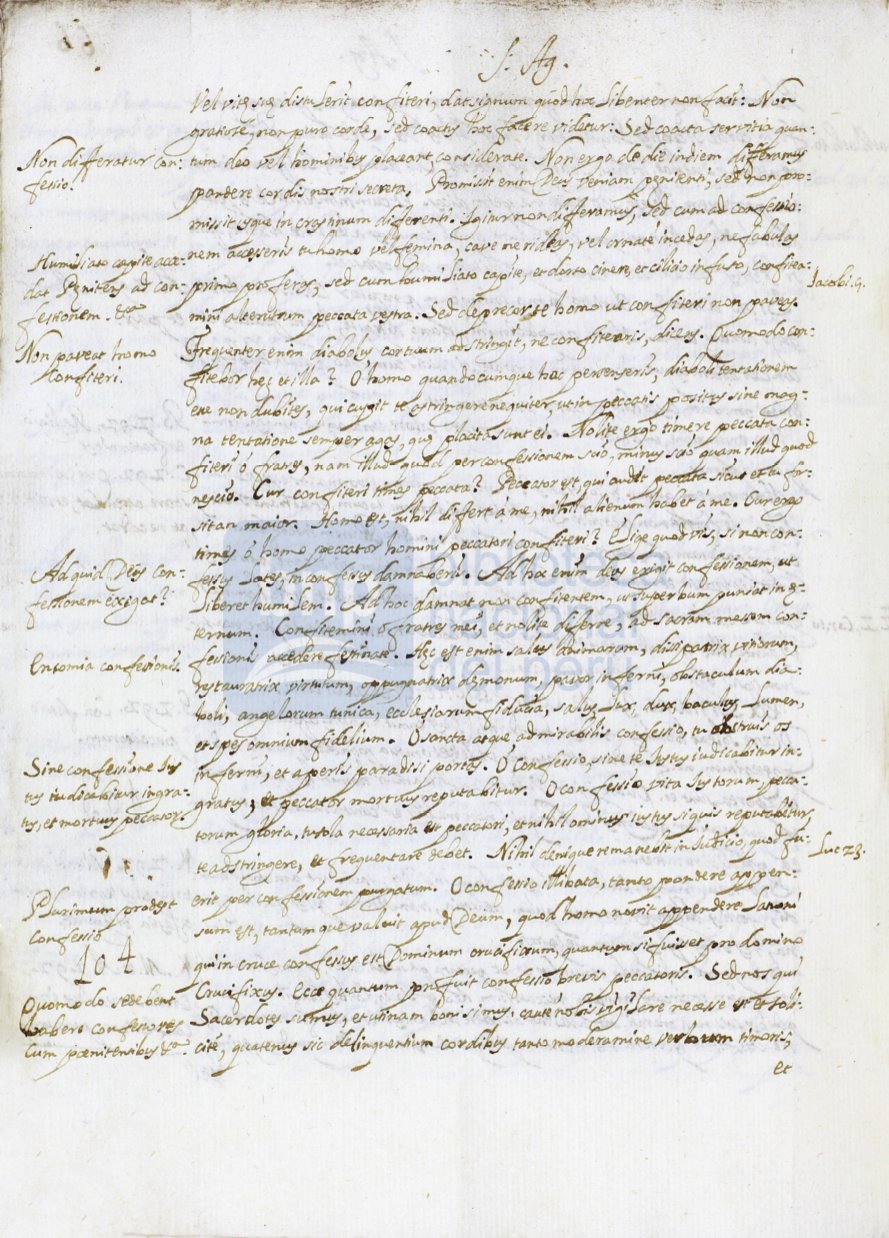 S. Ag.
Vel vitę suę distulerit confiteri, dat signum quod hoc libenter non facit: Non
gratiose, non puro corde, sed coactus hoc facere videtur: Sed coacta servitia quan-
tum deo vel hominibus placeant considerate. Non ergo de die in diem differamus
pandere cordis nostri secreta. Promisit enim Deus veniam penitenti, sed non pro-
missit usque in crastinum differenti. Igitur non differamus, sed cum ad confessio-
nem accesseris tu homo vel femina, cave ne rideas, vel ornate incedas, ne fabulas
primo proferas, sed cum humiliato capite, et dorto cinere, et cilicio infuso, confitea-
mini alterutrum peccata vestra. Sed deprecor te homo ut confiteri non paveas.
Frequenter enim diabolus cor tuum adstringit, ne confitearis, dicens. Quomodo con-
fitebor hęc et illa? O homo quandocunque hoc persenseris, diaboli tentationem
esse non dubites, qui cupit te astringere nequiter, ut in peccatis positus sine mag-
na tentatione semper agas, quę placita sunt ei. Nolite ergo timere peccata con-
fiteri ó fratres, nam illud quod per confessionem scio, minus scio quam illud quod
nescio. Cur confiteri times peccata? Peccator est, qui audit peccata sicut et tu for-
sitan maior. Homo est, nihil differt á me, nihil alienum habet á me. Cur ergo
times ó homo peccator homini peccatori confiteri? Elige quod vis, si non con-
fessus lates, inconfessus damnaberis. Ad hoc enim deus exigit confessionem, ut
liberet humilem. Ad hoc damnat non confitentem, ut superbum puniat in ę-
ternum. Confitemini ó fratres mei, et nolite differre, ad sacram messem con-
fessionis accedere festinate. Hęc est enim salus animarum, dissipatrix vitiorum,
restauratrix virtutum, oppugnatrix dęmonum, pavor inferni, obstaculum dia-
boli, angelorum tunica, ecclesiarum fiducia, salus, lux, dux, baculus, lumen,
et spes omnium fidelium. O sancta atque admirabilis confessio, tu obstruis os
inferni, et aperis paradisi portas. O confessio, sine te Iustus iudicabitur in-
gratus, et peccator mortuus reputabitur. O confessio vita Iustorum pecca-
torum gloria, tu sola necessaria es peccatori, et nihilominus iustus si quis reputabitur,
te adstringere, et frequentare debet. Nihil denique remanebit in Iudicio, quod fu-
erit per confessionem purgatum. O confessio illibata, tanto pondere appen-
sum est, tantumque valuit apud Deum, quod homo novit appendere latroni
qui in cruce confessus est Dominum crucifixum, quantum si fuisset pro domino
Crucifixus. Ecce quantum profuit confessio brevis peccatoris. Sed nos qui
Sacerdotes sumus, et utinam boni simus, caute nobis vigilare necesse est et soli-
cite, quatenus sic delinquentium cordibus tanto moderamine verborum timoris,
et
Non differatur con-
fessio.
Humiliato capite acce-
dat Pęnitens ad con-
fessionem. &a
Non paveat homo
Confiteri.
Ad quid Deus con-
fessionem exigat?
Encomia confessionis.
Sine confessione Ius-
tus iudicabitur ingra-
tus, et mortuus peccator.
Plurimum prodest
Confessio
104
Quomodo se debent
habere confessores
Cum pœnitentibus &a
Iacobi. 5.
Luc 23.